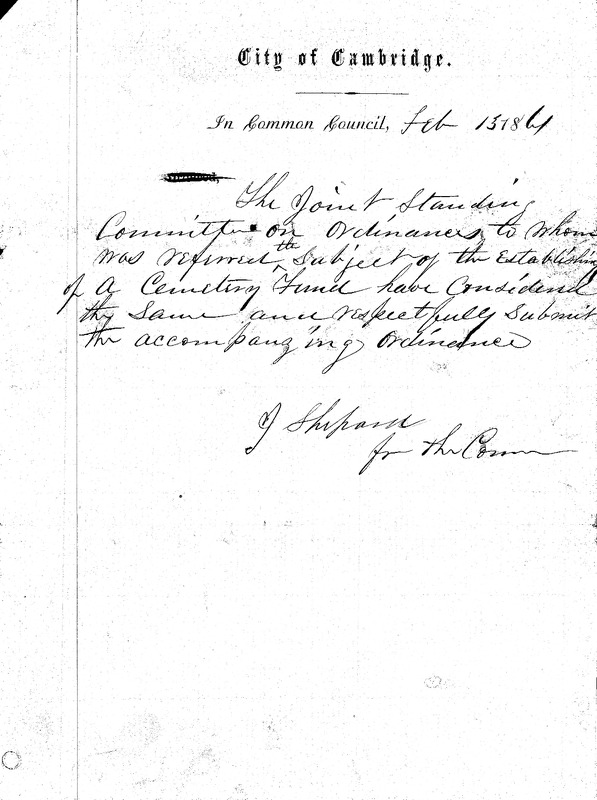 City of Cambridge.
In Common Council, Feb 13 1864
The Joint Standing
Committee on Ordinances to whom
was referred the Subject of the Establishing
of A Cemetery Fund have Considered
the Same and respectfully Submit
the accompanying Ordinance
J Shepard
for the Comm